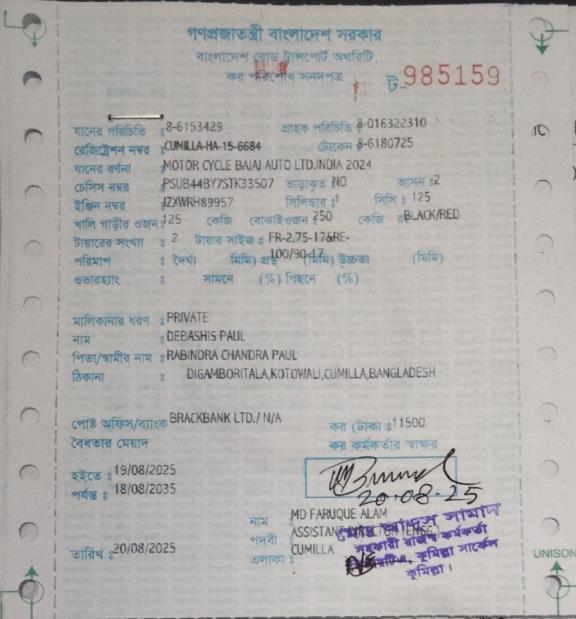 গণপ্রজাতন্ত্রী বাংলাদেশ সরকার
বাংলাদেশ রোড ট্রান্সপোর্ট অথরিটি
কর পরিশোধ সনদপত্র ট- 985159
যানের পরিচিতি : 8-6153429 গ্রাহক পরিচিতি : 8-016322310
রেজিষ্ট্রেশন নম্বর : CUMILLA-HA-15-6684 টোকেন : 8-6180725
যানের বর্ণনা : MOTOR CYCLE BAJAJ AUTO LTD.INDIA 2024
চেসিস নম্বর : PSUB44BY7STK33507 ভাড়াকৃত : NO আসন : 2
ইঞ্জিন নম্বর : JZXWRH89957 সিলিন্ডার : 1 সিসি : 125
খালি গাড়ীর ওজন : 125 কেজি বোঝাই ওজন : 250 কেজি রং : BLACK/RED
টায়ারের সংখ্যা : 2 টায়ার সাইজ : FR-2.75-17&RE-
100/90-17
পরিমাপ : দৈর্ঘ্য মিমি) প্রস্থ (মিমি) উচ্চতা (মিমি)
ওভারহ্যাং : সামনে (%) পিছনে (%)
মালিকানার ধরণ : PRIVATE
নাম : DEBASHIS PAUL
পিতা/স্বামীর নাম : RABINDRA CHANDRA PAUL
ঠিকানা : DIGAMBORITALA,KOTOWALI,CUMILLA,BANGLADESH
পোষ্ট অফিস/ব্যাংক BRACKBANK LTD./ N/A কর (টাকা : 11500
বৈধতার মেয়াদ কর কর্মকর্তার স্বাক্ষর
হইতে : 19/08/2025
পর্যন্ত : 18/08/2035
20-08-25
নাম : MD FARUQUE ALAM
পদবী : ASSISTANT
তারিখ : 20/08/2025 এলাকা : CUMILLA
সামাদ
সহকারী রাজস্ব কর্মকর্তা
কুমিল্লা সার্কেল
কুমিল্লা।
UNISON